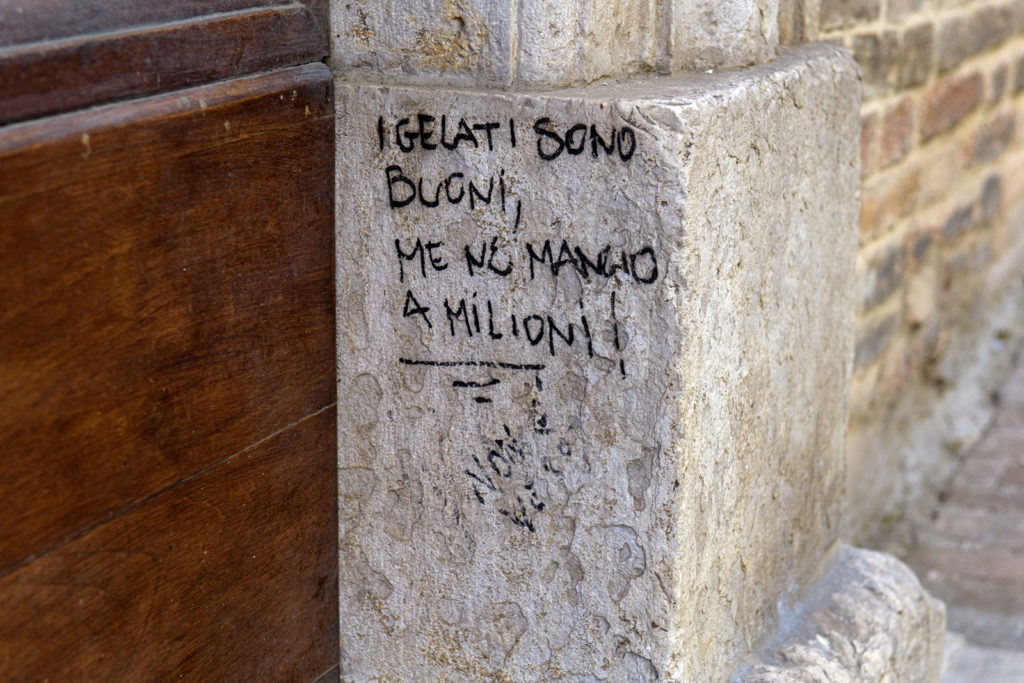 I GELATI SONO
BUONI,
ME NE MANGIO
A MILIONI!
NON